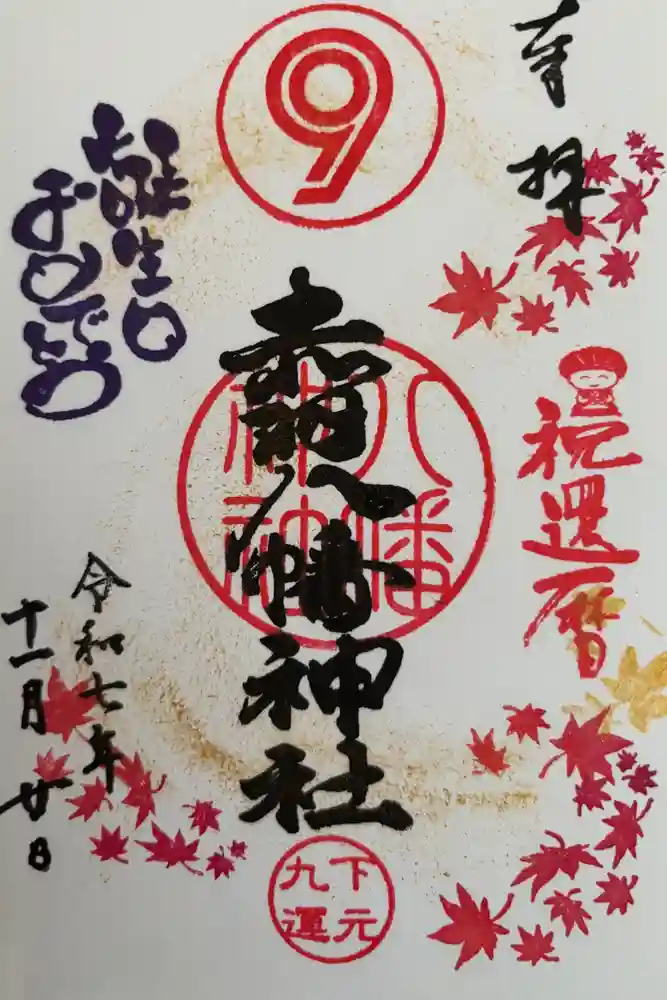 奉拝
祝還暦
9
赤羽八幡神社
八幡
神社
下元
九運
誕生日
おめでとう
令和七年
十一月廿日